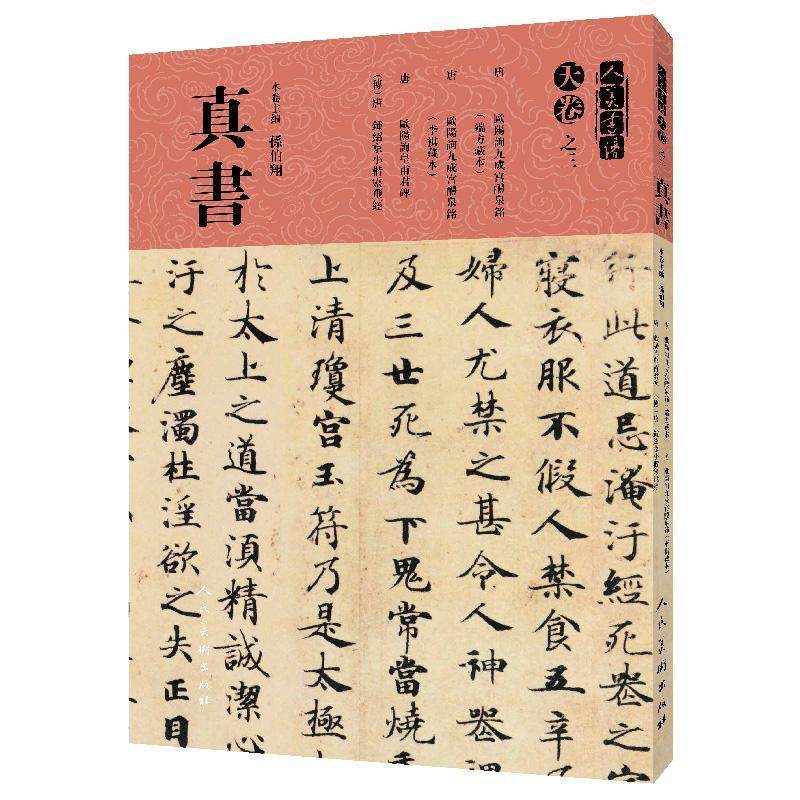 人美書譜
天卷之三
唐 歐陽詢九成宮醴泉銘
（端方藏本）
唐 歐陽詢九成宮醴泉銘
（李祺藏本）
唐 歐陽詢皇甫君碑
（傳）唐 鍾紹京小楷靈飛經
本卷主編 孫伯翔
真書
行此道忌淹汙經死喪之
寢衣服不假人禁食五辛
婦人尤禁之甚令人神器
及三世死為下鬼常當燒
上清瓊宮玉符乃是太極
於太上之道當須精誠潔心
汙之塵濁杜淫欲之失正目
人民美術出版社
人美書譜
天卷
之三
真書
本卷主編 孫伯翔
人民美術出版社